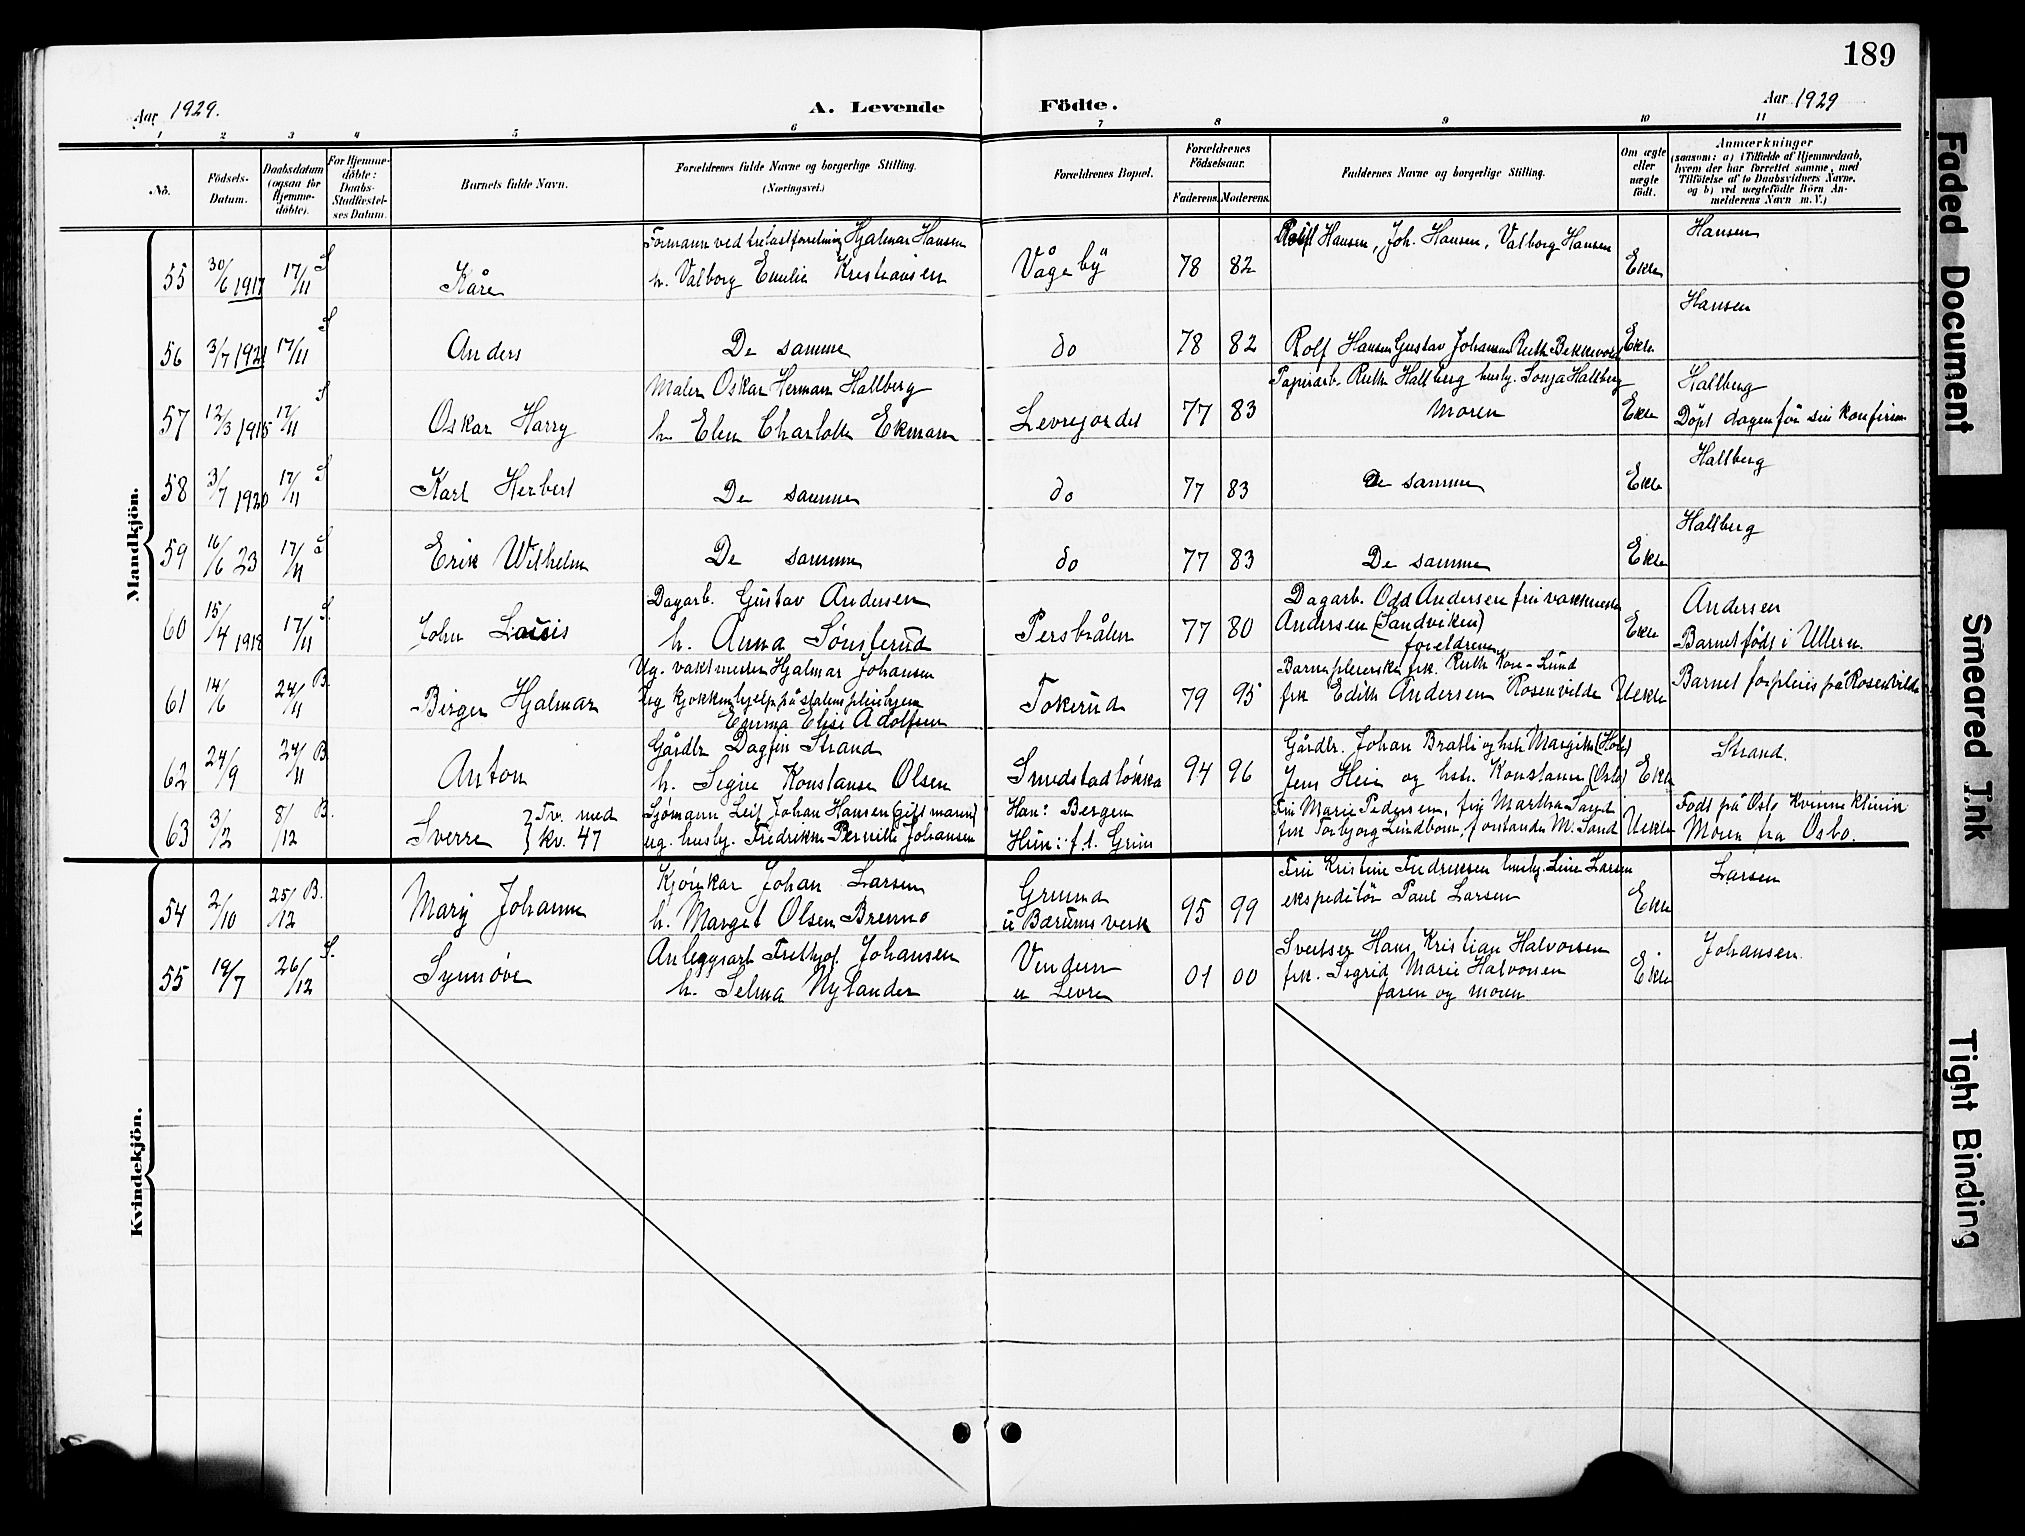 189
Aar 1929.
A. Levende Födte.
Aar 1929
1 2 3 4 5 6 7 8 9 10 11
No.
Födsels-Datum.
Daabsdatum (ogsaa for Hjemme-döbte).
For Hjemme-döbte: Daabs-Stadfæstel-ses Datum.
Barnets fulde Navn.
Forældrenes fulde Navne og borgerlige Stilling. (Næringsvei.)
Forældrenes Bopæl.
Forældrenes Födselsaar.
Faderens. Moderens.
Faddernes Navne og borgerlige Stilling.
Om ægte eller uægte födt.
Anmærkninger
(saasom: a) i Tilfælde af Hjemmedaab,
hvem der har forrettet samme, med
Tilföielse af to Daabsvidners Navne,
og b) ved uægtefödte Börn An-
melderens Navn m. V.)
Mandkjön.
55 30/6 1917 17/11 S Kåre
Formann ved trelastforretning Hjalmar Hansen
h. Valborg Emilie Kristiansen
Våg eby 78 82
Rolf Hansen, Joh. Hansen, Valborg Hansen
Ekte Hansen
56 3/7 1921 17/11 S Anders De samme do 78 82 Rolf Hansen Gustav Johansen Ruth Bekkevold Ekte Hansen
57 12/3 1915 17/11 S Oskar Harry
Maler Oskar Herman Hallberg
h. Elen Charlotte Ekman
Levrejordet 77 83
Papirarb. Ruth Hallberg husby. Sonja Hallberg
Moren
Ekte
Hallberg
Döpt dagen för sin konfirm
58 3/7 1920 17/11 S Karl Herbert De samme do 77 83 De samme Ekte Hallberg
59 16/6 23 17/11 S Erik Wilhelm De samme do 77 83 De samme Ekte Hallberg
60 15/4 1918 17/11 S. John Louis
Dagarb. Gustav Andersen
h. Anna Sønsterud
Persbråten 77 80
Dagarb. Odd Andersen fru vaktmester
Andersen (Sandviken)
foreldrene
Ekte
Andersen
Barnet född i Ullern.
61 14/6 24/11 B. Birger Hjalmar
Ug. vaktmester Hjalmar Johansen
ug kjøkkenhjelp på statens pleiehjem
Emma Elise Adolfsen
Tokerud 79 95
Barnepleierske frk. Ruth Lund
frk Edith Andersen Rosenvilde
Uekte
Barnet forpleies på Rosenvilde
62 24/9 24/11 B. Anton
Gårdbr Dagfin Strand
h. Signe Konstanse Olsen
Smedstadløkka 94 96
Gårdbr. Johan Bratli og hstr Margith (Hole)
Jens Heie og hstr. Konstanse (Oslo)
Ekte Strand.
63 3/2 8/12 B. Sverre } Tv. med kv. 47
Sjømann Leif Johan Hansen (gift mann)
ug. husby. Fredrikke Pernille Johansen
Han: Bergen
Hun: f. t. Grini
Fru Marie Pedersen, fru Martha Sand
frk Torbjorg Lindbom, forstander M. Sand
Uekte
Født på Oslo Kvinneklinik
Moren fra Osbo.
Kvindekjön.
54 2/10 25/12 B. Mary Johanne
Kjörekar Johan Larsen
h. Margit Olsen Brenno
Grunna
u Bærums verk
95 99
Fru Kristine Fredriksen husby. Line Larsen
ekspeditör Paul Larsen
Ekte Larsen
55 19/7 26/12 S. Synnöve
Anleggsarb Frithjof Johansen
h. Selma Nylander
Vindern
u Levre
01 00
Sveitser Hans Kristian Halvorsen
frk. Sigrid Marie Halvorsen
faren og moren
Ekte Johansen.
Faded Document
Smeared Ink
Tight Binding